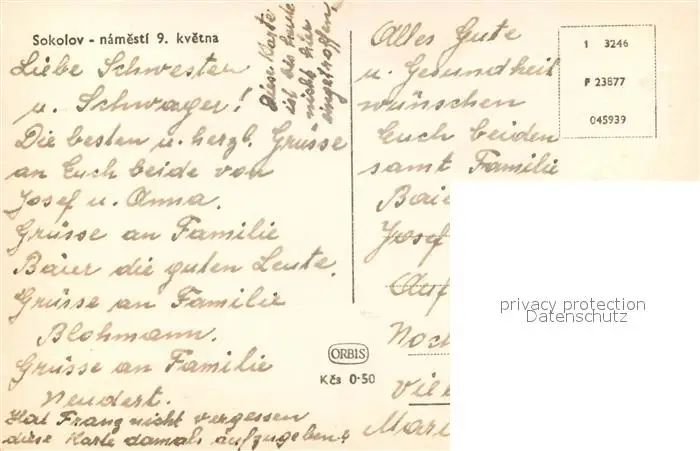 Sokolov - náměstí 9. května
Liebe Schwester
u. Schwager!
Die besten u. herzl. Grüsse
an Euch beide von
Josef u. Anna.
Grüsse an Familie
Baier die guten Leute.
Grüsse an Familie
Blohmann.
Grüsse an Familie
Neudert.
Hat Franz nicht vergessen
diese Karte damals aufzugeben?
Diese Karte
ist bis heute
nicht hier
eingetroffen,
Alles Gute
u. Gesundheit
wünschen
Euch beiden
samt Familie
Baie
Josef
Auf
Noch
viel
Mari
ORBIS
Kčs 0·50
1 3246
F 23877
045939
privacy protection
Datenschutz